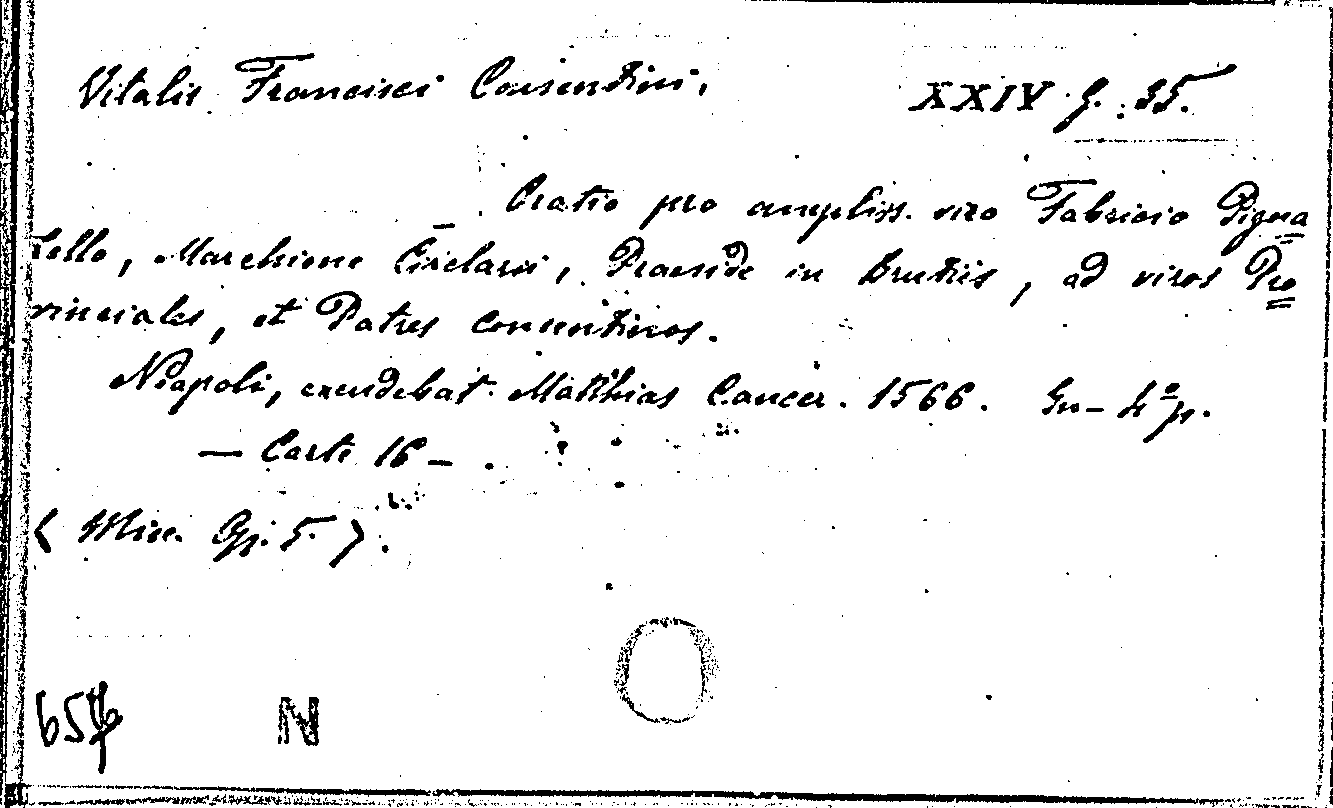 Vitalis Francisci Consentini, XXIV. G. 35.
Oratio pro ampliss. viro Fabricio Pigna=
tello, Marchione Circlarii, Praeside in Brutiis, ad viros Pro=
vinciales, et Patres Consentinos.
Neapoli, excudebat Matthias Cancer. 1566. In-4º p.
— Carte 16 — .
( Misc. Op. 5. ).
N